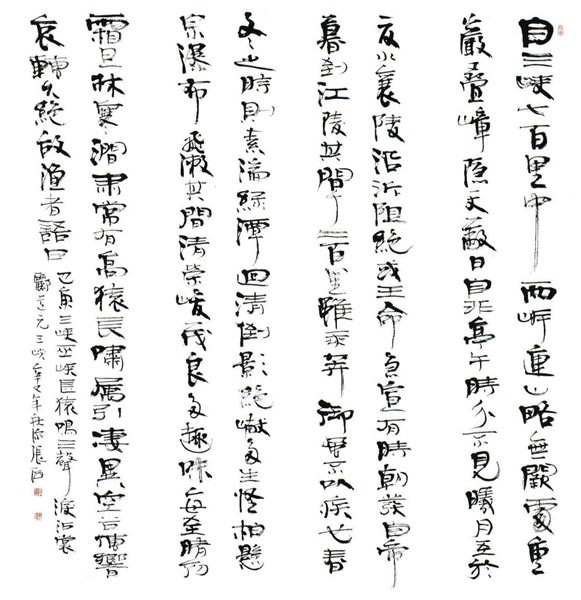 自三峽七百里中兩岸連山略無闕處重
巖疊嶂隱天蔽日自非亭午時分不見曦月至於
夏水襄陵沿泝阻絕或王命急宣有時朝發白帝
暮到江陵其間千二百里雖乘奔御風不以疾也春
冬之時則素湍綠潭迴清倒影絕巘多生怪柏懸
泉瀑布飛漱其間清榮峻茂良多趣味每至晴初
霜旦林寒澗肅常有高猿長嘯屬引淒異空谷傳響
哀轉久絕故漁者語曰
巴東三峽巫峽長猿鳴三聲淚沾裳
酈道元三峽